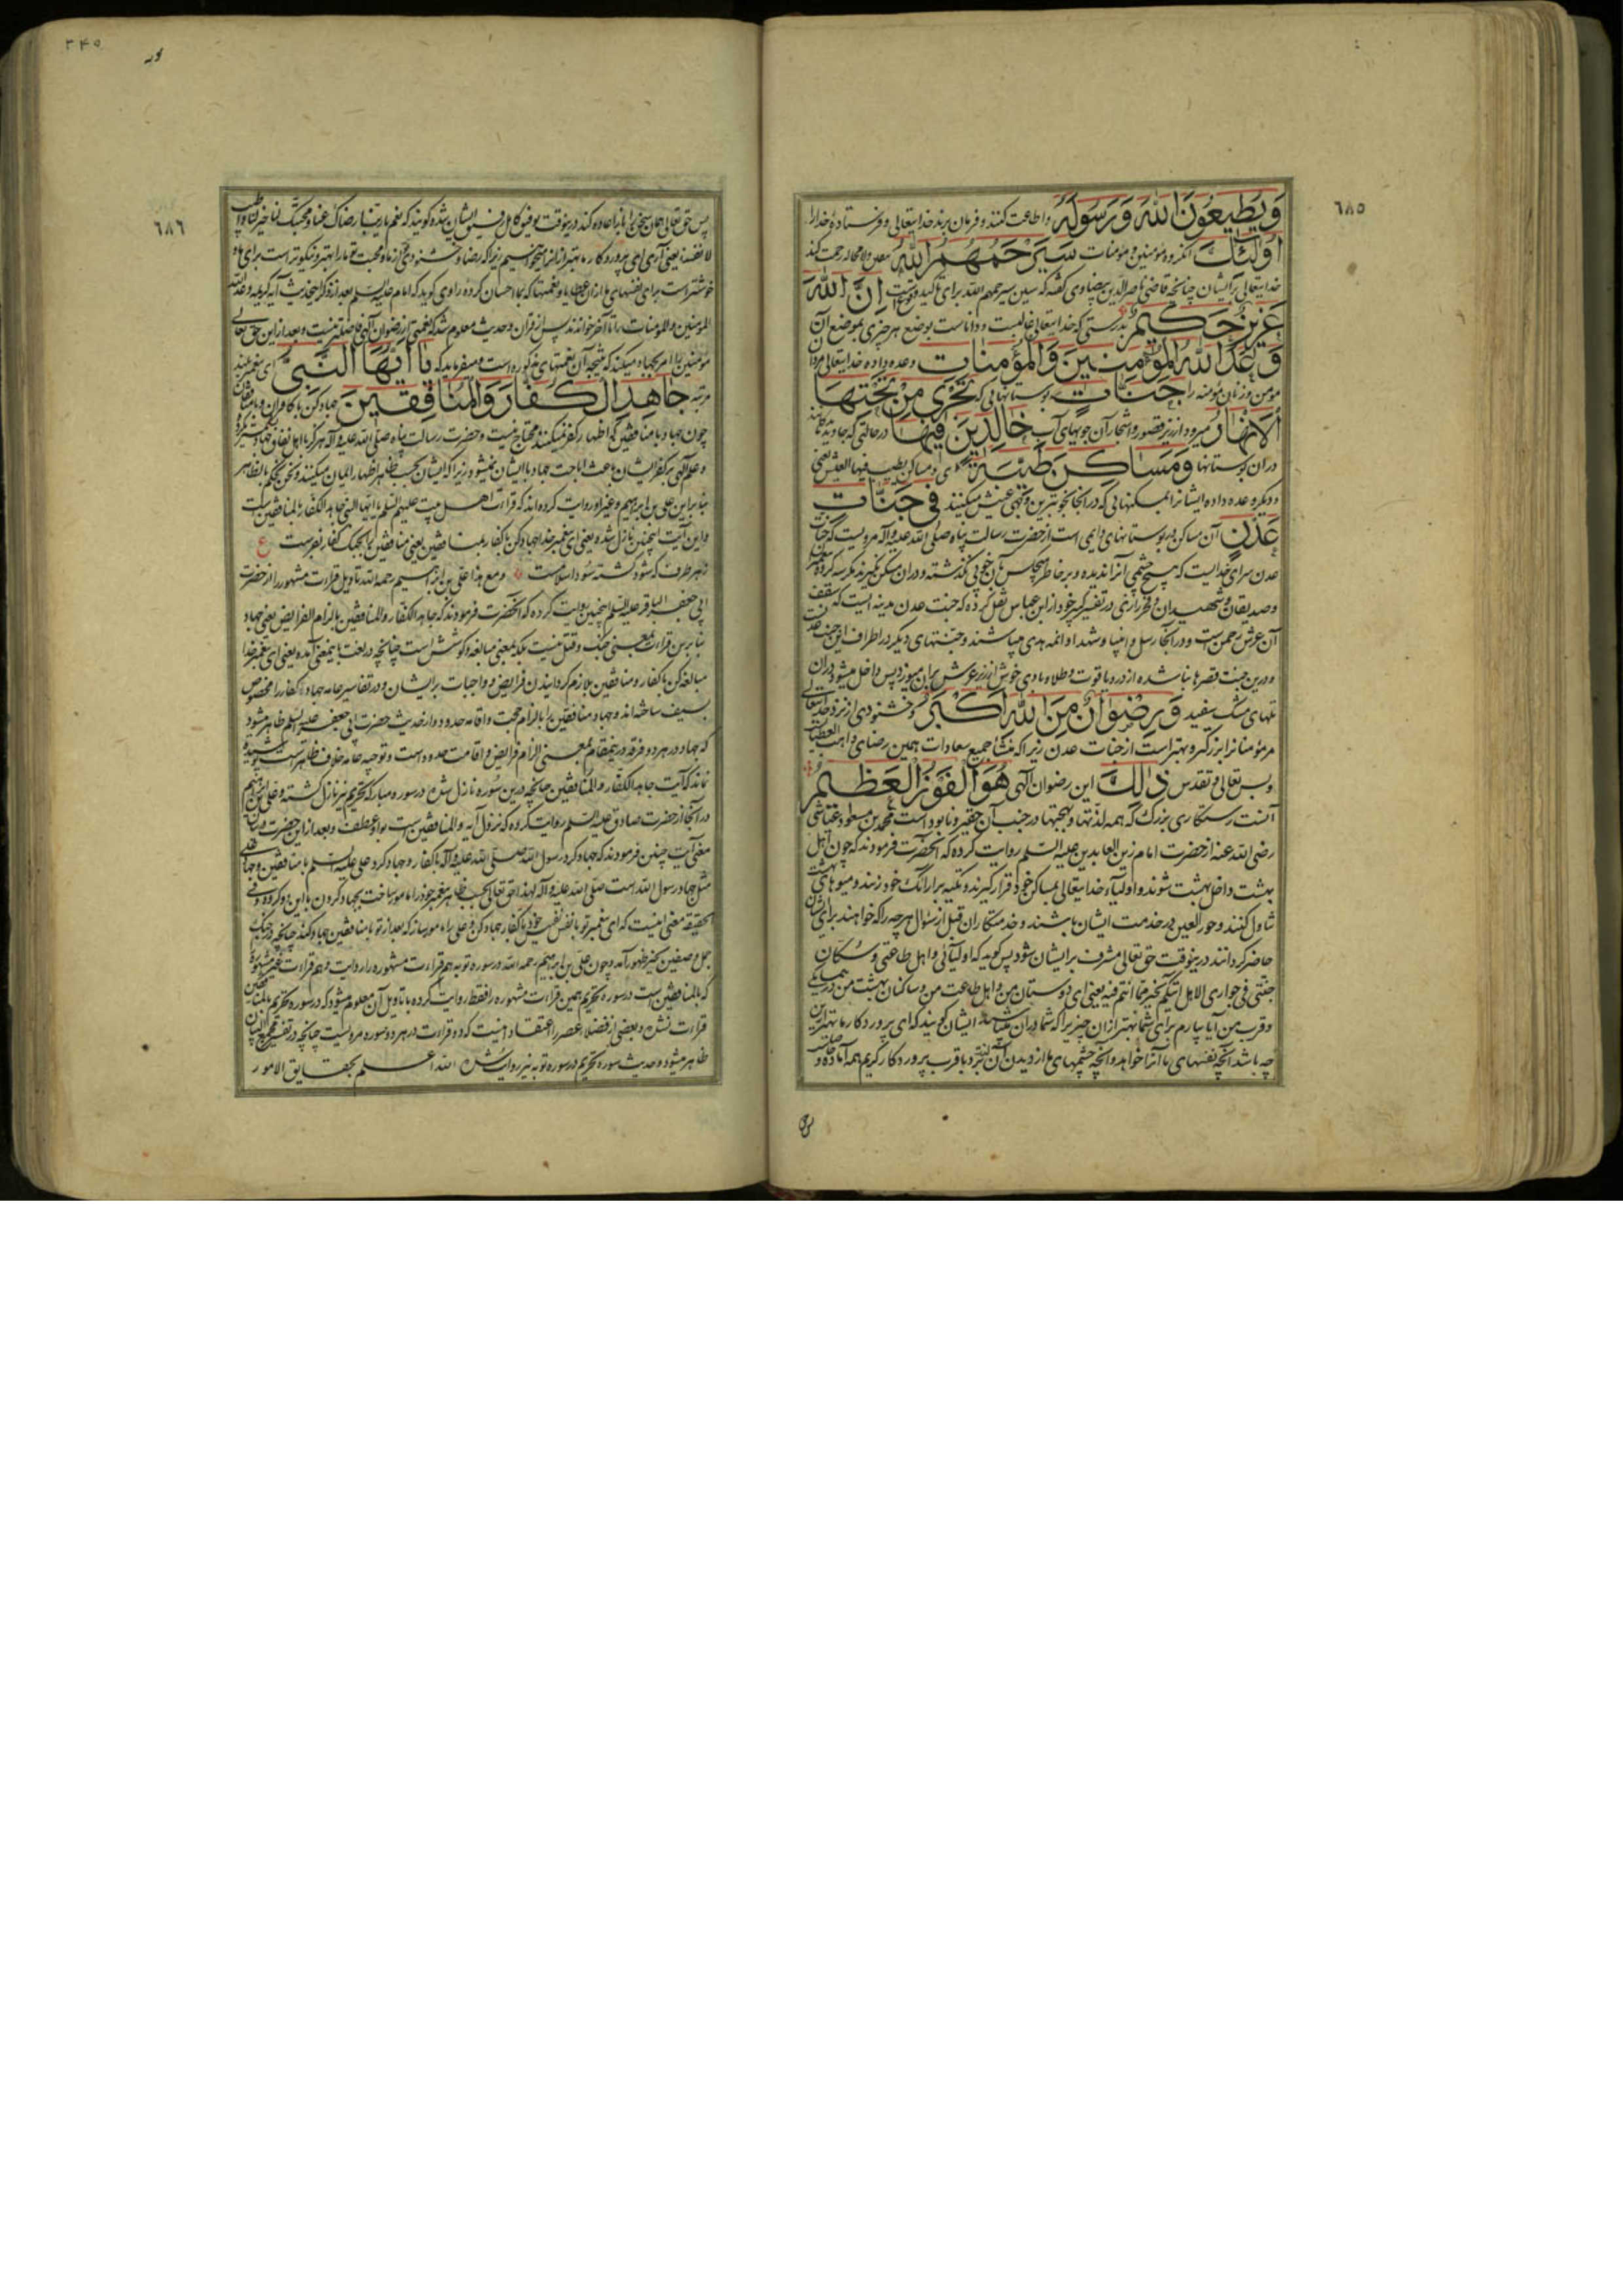 ٦٨٥
وَيُطِيعُونَ اللّٰهَ وَرَسُولَهُ واطاعت کنند و فرمان برند خدایتعالی و فرستاده خدارا
اُولٰئِكَ انکروه مؤمنین و مؤمنات سَيَرْحَمُهُمُ اللّٰهُ رحمت کند
خدایتعالی برایشان چنانچه قاضی ناصرالدین بیضاوی کفته که سین سیرحمهم الله برای تاکید وقوعست اِنَّ اللّٰهَ
عَزِيزٌ حَكِيمٌ بدرستی که خدایتعالی غالبست و داناست بوضع هر چیزی بموضع آن
وَعَدَ اللّٰهُ الْمُؤْمِنِينَ وَالْمُؤْمِنَاتِ وعده داده خدایتعالی مردان
مؤمن و زنان مؤمنه را جَنَّاتٍ بوستانهایی که تَجْرِي مِنْ تَحْتِهَا
الْاَنْهَارُ میرود از زیر قصور و اشجار آن جویهای آب خَالِدِينَ فِيهَا در حالتی که جاوید
دران بوستانها وَمَسَاكِنَ طَيِّبَةً ای و مساکن یطیب فیها العیش یعنی
و دیکر وعده داده ایشانرا بمسکنهایی که در انجا بخوبترین وجهی عیش میکنند فِي جَنَّاتِ
عَدْنٍ آن مساکن در بوستانهای دایمی است از حضرت رسالت پناه صلی الله علیه وآله مرویست که جنات
عدن سرای خدایست که هیچ چشمی آنرا ندیده و بر خاطر هیچکس بآن خوبی نکذشته و دران مسکن نکیرند مکر سه کروه پیغمبران
وصدیقان وشهیدان و فخررازی در تفسیر کبیر خود از ابن عباس نقل کرده که جنت عدن مدینه ایست که سقف
آن عرش رحمن است و در آنجا رسل و انبیا و شهدا و ائمه هدی میباشند و جنتهای دیکر در اطراف این جنت
و درین جنت قصرها بنا شده از در و یاقوت و طلا و بادی خوش از زیر عرش بران میوزد پس داخل میشود دران
تلهای مشک سفید وَرِضْوَانٌ مِنَ اللّٰهِ اَكْبَرُ و خشنودی از نزد خدایتعالی
مر مؤمنانرا بزرکتر و بهتر است از جنات عدن زیرا که منشأ جمیع سعادات همین رضای واهب العطیات
وبس تعالی وتقدس ذٰلِكَ این رضوان الهی هُوَ الْفَوْزُ الْعَظِيمُ
آنست رستکاری بزرک که همه لذتها و بهجتها در جنب آن حقیر و نابود است محمد بن مسعود عیاشی
رضی الله عنه از حضرت امام زین العابدین علیه السلم روایت کرده که آنحضرت فرمودند که چون اهل
بهشت داخل بهشت شوند و اولیاء خدایتعالی بمساکن خود قرار کیرند و تکیه بر ارائک خود زنند و میوهای بهشت
تناول کنند و حورالعین در خدمت ایشان باشند و خدمتکاران قبل از سؤال هر چه را که خواهند برای ایشان
حاضر کردانند درینوقت حق تعالی مشرف برایشان شود پس کوید که اولیائی واهل طاعتی وسکان
جنتی فی جواری الا هل انبئکم بخیر مما انتم فیه یعنی ای دوستان من واهل طاعت من وساکنان بهشت من در همسایکی
وقرب من آیا بیارم برای شما بهتر ازان چیزیرا که شما دران هستید ایشان کویند که ای پروردکار ما بهتر ازین
چه باشد آنچه نفسهای ما آنرا خواهد و آنچه چشمهای ما از دیدن آن لذت برد با قرب پروردکار کریم همه آماده و
پس
٣٤٥
٦٨٦
پس حق تعالی همان سخن را بایشان اعاده کند درینوقت کویند که نعم یا ربنا رضاک عنا ومحبتک لنا خیر لنا واطیب
لانفسنا یعنی آری ای پروردکار ما رضا و خشنودی تو از ما و محبت تو مارا بهتر و نیکوتر است برای ما و
خوشتر است برای نفسهای ما راوی کوید که امام علیه السلم بعد از ذکر این حدیث آیه کریمه وعد الله
المؤمنین والمؤمنات را تا آخر خواندند پس از قران و حدیث معلوم شد که نعمتی از رضوان الهی فاضلتر نیست و بعد ازین حق تعالی
مؤمنین را امر بجهاد میکند که نتیجه آن نعمتهای مذکوره است و میفرماید که يَا اَيُّهَا النَّبِيُّ ای پیغمبر بلند
مرتبه جَاهِدِ الْكُفَّارَ وَالْمُنَافِقِينَ جهاد کن با کافران و با منافقان
چون جهاد با منافقین که اظهار کفر نمیکنند محتاج نیست و حضرت رسالت پناه صلی الله علیه وآله هرکز با اهل نفاق جهاد نمیکرد
و علم الهی بر کفر ایشان باعث اباحت جهاد با ایشان نمیشود زیرا که ایشان بحسب ظاهر اظهار ایمان میکنند و نحن نحکم بالظاهر
بنابراین علی بن ابراهیم وغیر او روایت کرده اند که قراءت اهل بیت علیهم السلم یا ایها النبی جاهد الکفار بالمنافقین است
واین آیت اینچنین نازل شده یعنی ای پیغمبر خدا جهاد کن با کفار بمنافقین یعنی منافقین را بجنک کفار بفرست ع
زهر طرف که شود کشته سود اسلامست ومع هذا علی بن ابراهیم رحمه الله تاویل قراءت مشهور را از حضرت
ابی جعفر الباقر علیه السلم اینچنین روایت کرده که آنحضرت فرمودند که جاهد الکفار والمنافقین بالزام الفرایض یعنی جهاد
بنابرین قراءت بمعنی جنک و قتل نیست بلکه بمعنی مبالغه و کوشش است چنانچه در لغت باینمعنی آمده یعنی ای پیغمبر خدا
مبالغه کن با کفار و منافقین بلازم کردانیدن فرایض و واجبات برایشان و در تفاسیر عامه جهاد با کفار را مخصوص
بسیف ساخته اند وجهاد منافقین را بالزام حجت واقامه حدود و از حدیث حضرت ابی جعفر علیه السلم ظاهر میشود
که جهاد در هر دو فرقه درینمقام بمعنی الزام فرایض و اقامت حدود است و توجیه عامه خلاف ظاهر است پوشیده
نماند که آیت جاهد الکفار والمنافقین چنانچه درین سوره نازل شده در سوره مبارکه تحریم نیز نازل کشته و علی بن ابراهیم
در آنجا از حضرت صادق علیه السلم روایت کرده که نزول آیه والمنافقین است بواو عطف و بعد ازین حضرت در بیان
معنی آیت چنین فرمودند که جهاد کرد رسول الله صلی الله علیه وآله با کفار و جهاد کرد علی علیه السلم با منافقین وجهاد علی
مثل جهاد رسول الله است صلی الله علیه وآله لهذا حق تعالی بحسب ظاهر پیغمبر خود را مامور ساخت بجهاد کردن با این دو کروه و فی
الحقیقه معنی اینست که ای پیغمبر تو بنفس نفیس خود با کفار جهاد کن و علی را مامور ساز که بعد از تو با منافقین جهاد کند چنانچه در جنک
جمل و صفین بظهور آمد و چون علی بن ابراهیم رحمه الله در سوره توبه هم قراءت مشهوره را روایت و هم قراءت غیر مشهوره
که بالمنافقین است در سوره تحریم همین قراءت مشهوره را فقط روایت کرده با تاویل آن معلوم میشود که در سوره تحریم بالمنافقین
قراءت نشده و بعضی از فضلاء عصر را اعتقاد اینست که دو قراءت در هر دو سوره مرویست چنانچه در تفسیر مجمع البیان
ظاهر میشود و حدیث سوره تحریم در سوره توبه نیز روایت شده الله اعلم بحقایق الامور